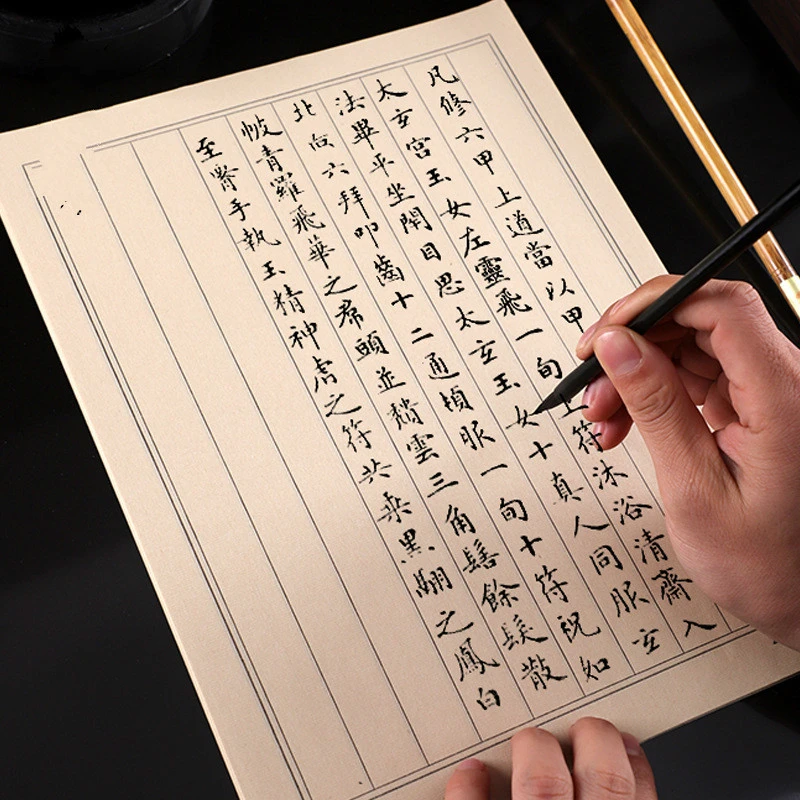 凡修六甲上道當以甲
太玄宮玉女左靈飛一旬上符沐浴清齋入
法畢平坐閉目思太玄玉女十真人同服玄
北向六拜叩齒十二通頓服一旬十符祝如
帔青羅飛華之帬頭並頹雲三角髻餘髮散
至腰手執玉精神虎之符共乘黑翮之鳳白